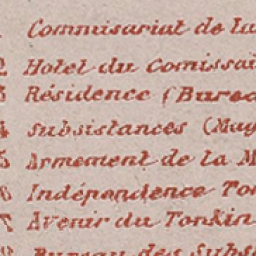 1 Commisariat de la
2 Hotel du Comissai
3 Résidence (Burea
4 Subsistances (Mag
5 Armement de la M
6 Indépendance Ton
7 Avenir du Tonkin
8 Bureau des Subs